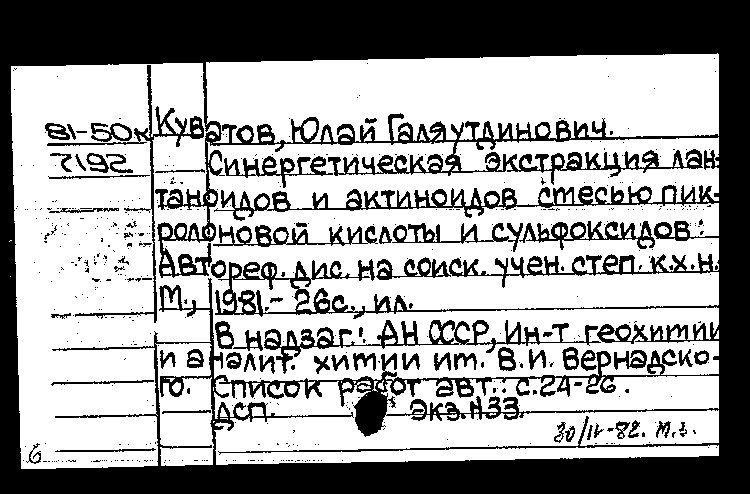 81-50к Куватов, Юлай Галяутдинович.
7192 Синергетическая экстракция лан-
таноидов и актиноидов смесью пик-
ролоновой кислоты и сульфоксидов:
Автореф. дис. на соиск. учен. степ. к.х.н.
М., 1981.- 26с., ил.
В надзаг.: АН СССР, Ин-т геохимии
и аналит. химии им. В.И. Вернадско-
го. Список работ авт.: с.24-26.
ДСП. Экз.№33.
30/IV-82. М.З.
6